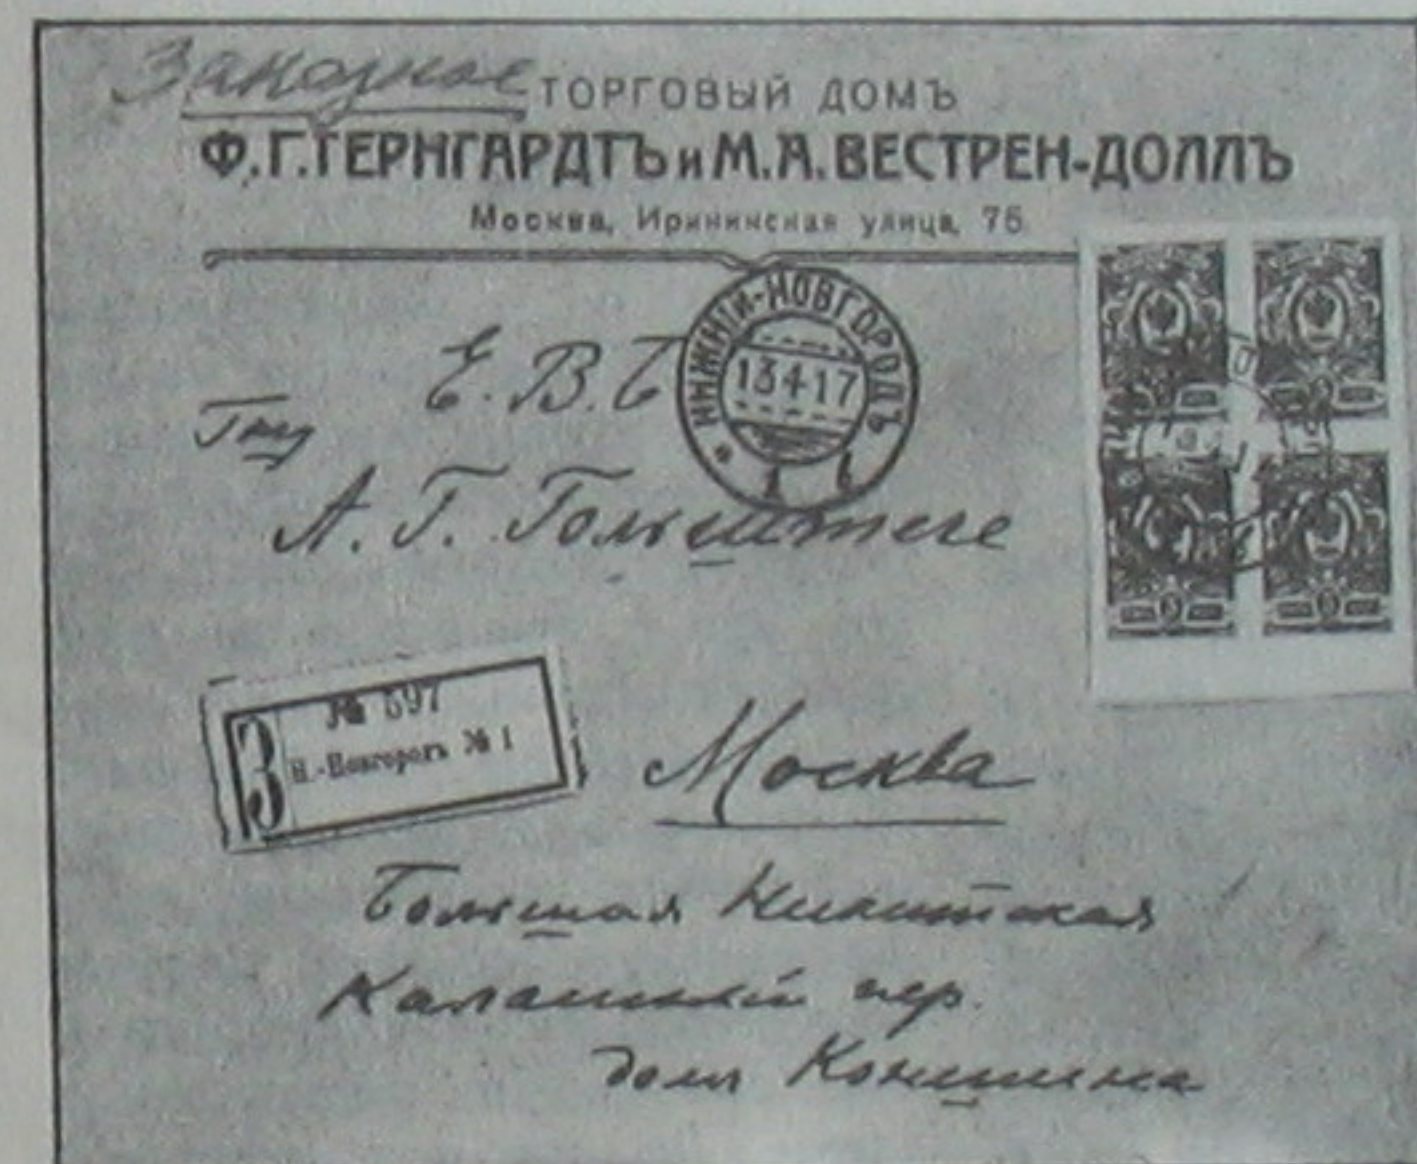 Заказное
ТОРГОВЫЙ ДОМЪ
Ф. Г. ГЕРНГАРДТЪ и М. А. ВЕСТРЕН-ДОЛЛЪ
Москва, Ирининская улица, 7б.
НИЖНІЙ-НОВГОРОДЪ
13 4 17
Е. В. Б
Гну
А. Г. Гольштеге
№ 597
З
Н.-Новгородъ № 1
Москва
Большая Никитская
Калашный пер.
домъ Коншина